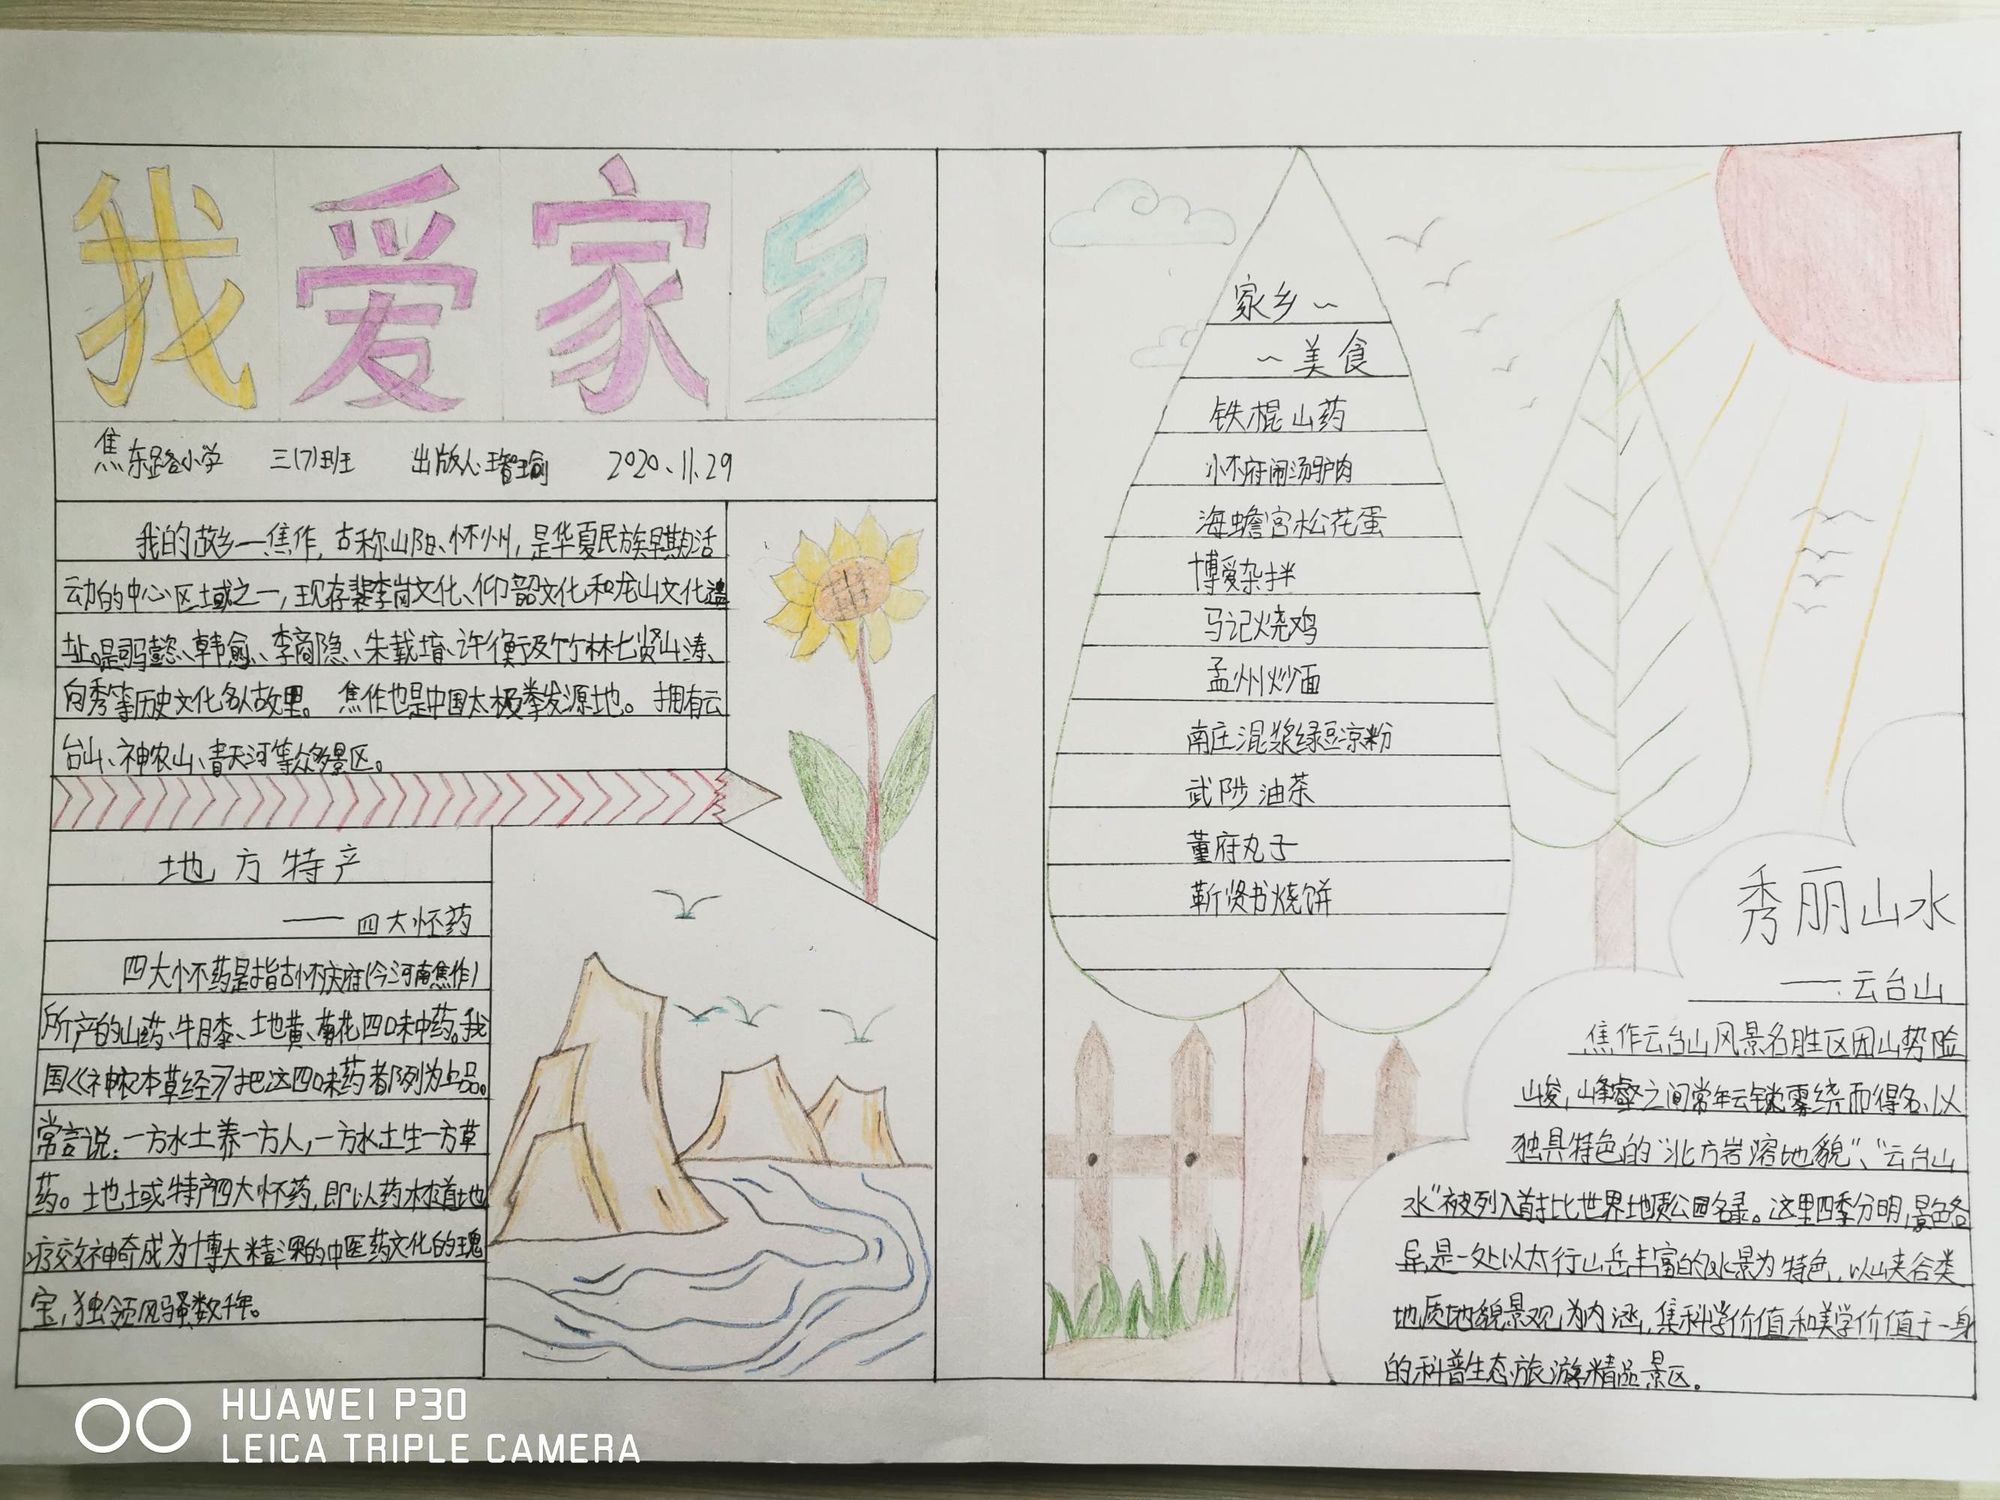 我爱家乡
焦东路小学 三(7)班 出版人:王智瑜 2020.11.29
我的故乡—焦作,古称山阳、怀州,是华夏民族早期活
动的中心区域之一,现存裴李岗文化、仰韶文化和龙山文化遗
址。是司马懿、韩愈、李商隐、朱载堉、许衡及竹林七贤山涛、
向秀等历史文化名人故里。焦作也是中国太极拳发源地。拥有云
台山、神农山、青天河等众多景区。
地方特产
——四大怀药
四大怀药是指古怀庆府(今河南焦作)
所产的山药、牛膝、土地黄、菊花四味中药。我
国《神农本草经》把这四味药都列为上品。
常言说:一方水土养一方人,一方水土生一方草
药。土地土或特产四大怀药,即以药材道地
疗效神奇成为博大精深的中医药文化的瑰
宝,独领风骚数千年。
家乡~
~美食
铁棍山药
怀府闹汤驴肉
海蟾宫松花蛋
博爱杂拌
马记烧鸡
孟州炒面
南庄混浆绿豆凉粉
武陟油茶
董府丸子
靳贤书烧饼
秀丽山水
——:云台山
焦作云台山风景名胜区因山势险
峻,峰壑之间常年云锁雾绕而得名、以
独具特色的“北方岩溶地貌”、“云台山
水”被列入首批世界地质公园名录。这里四季分明,景色各
异,是一处以太行山岳丰富的水景为特色,以峡谷类
地质地貌景观,为内涵,集科学价值和美学价值于一身
的科普生态旅游精品景区。
HUAWEI P30
LEICA TRIPLE CAMERA